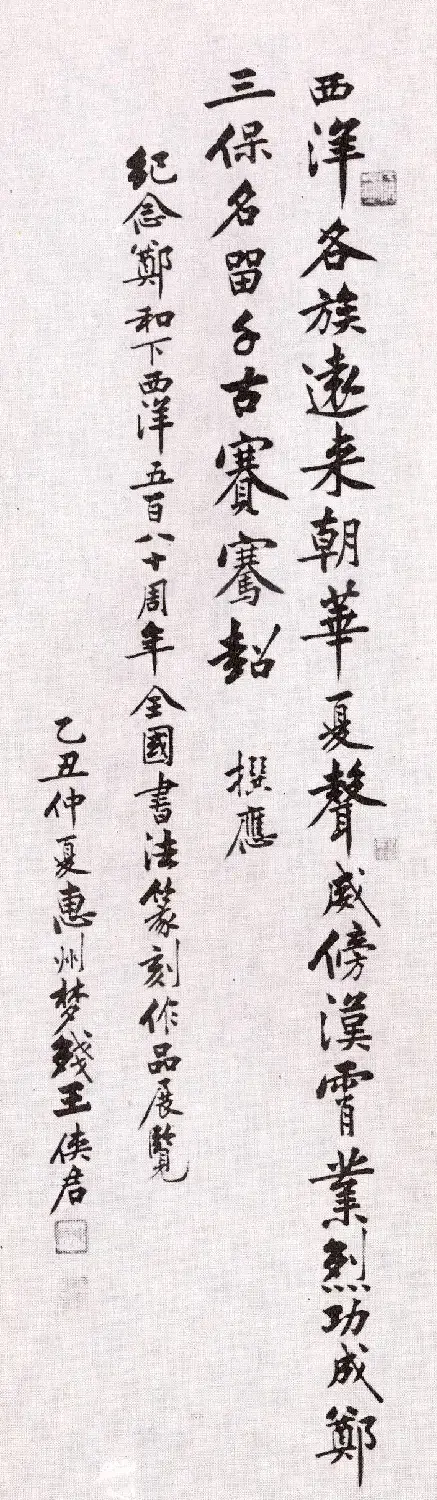 西洋各族遠来朝華夏聲威傍漢霄業烈功成鄭
三保名留千古賽騫超 撰應
紀念鄭和下西洋五百八十周年全國書法篆刻作品展覽
乙丑仲夏惠州梦錢王俠君